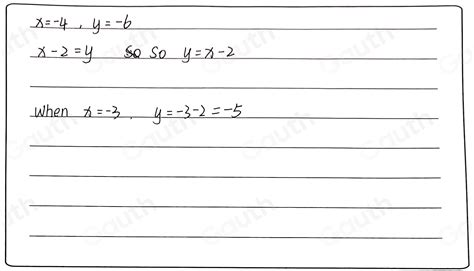 x=-4, y=-6
x-2=y so so y=x-2
When x=-3, y=-3-2=-5